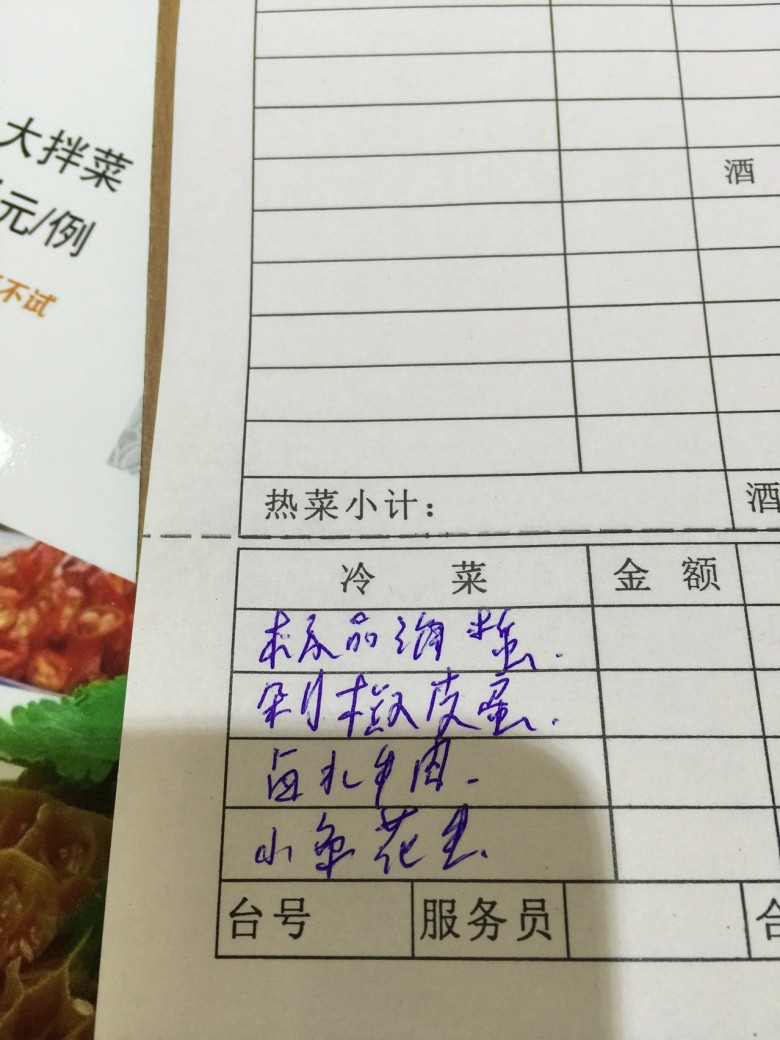 大拌菜
元/例
不试
酒
热菜小计：
酒
冷 菜
金 额
极品海蜇.
剁椒皮蛋.
卤水牛肉.
小鱼花生.
台号
服务员
合